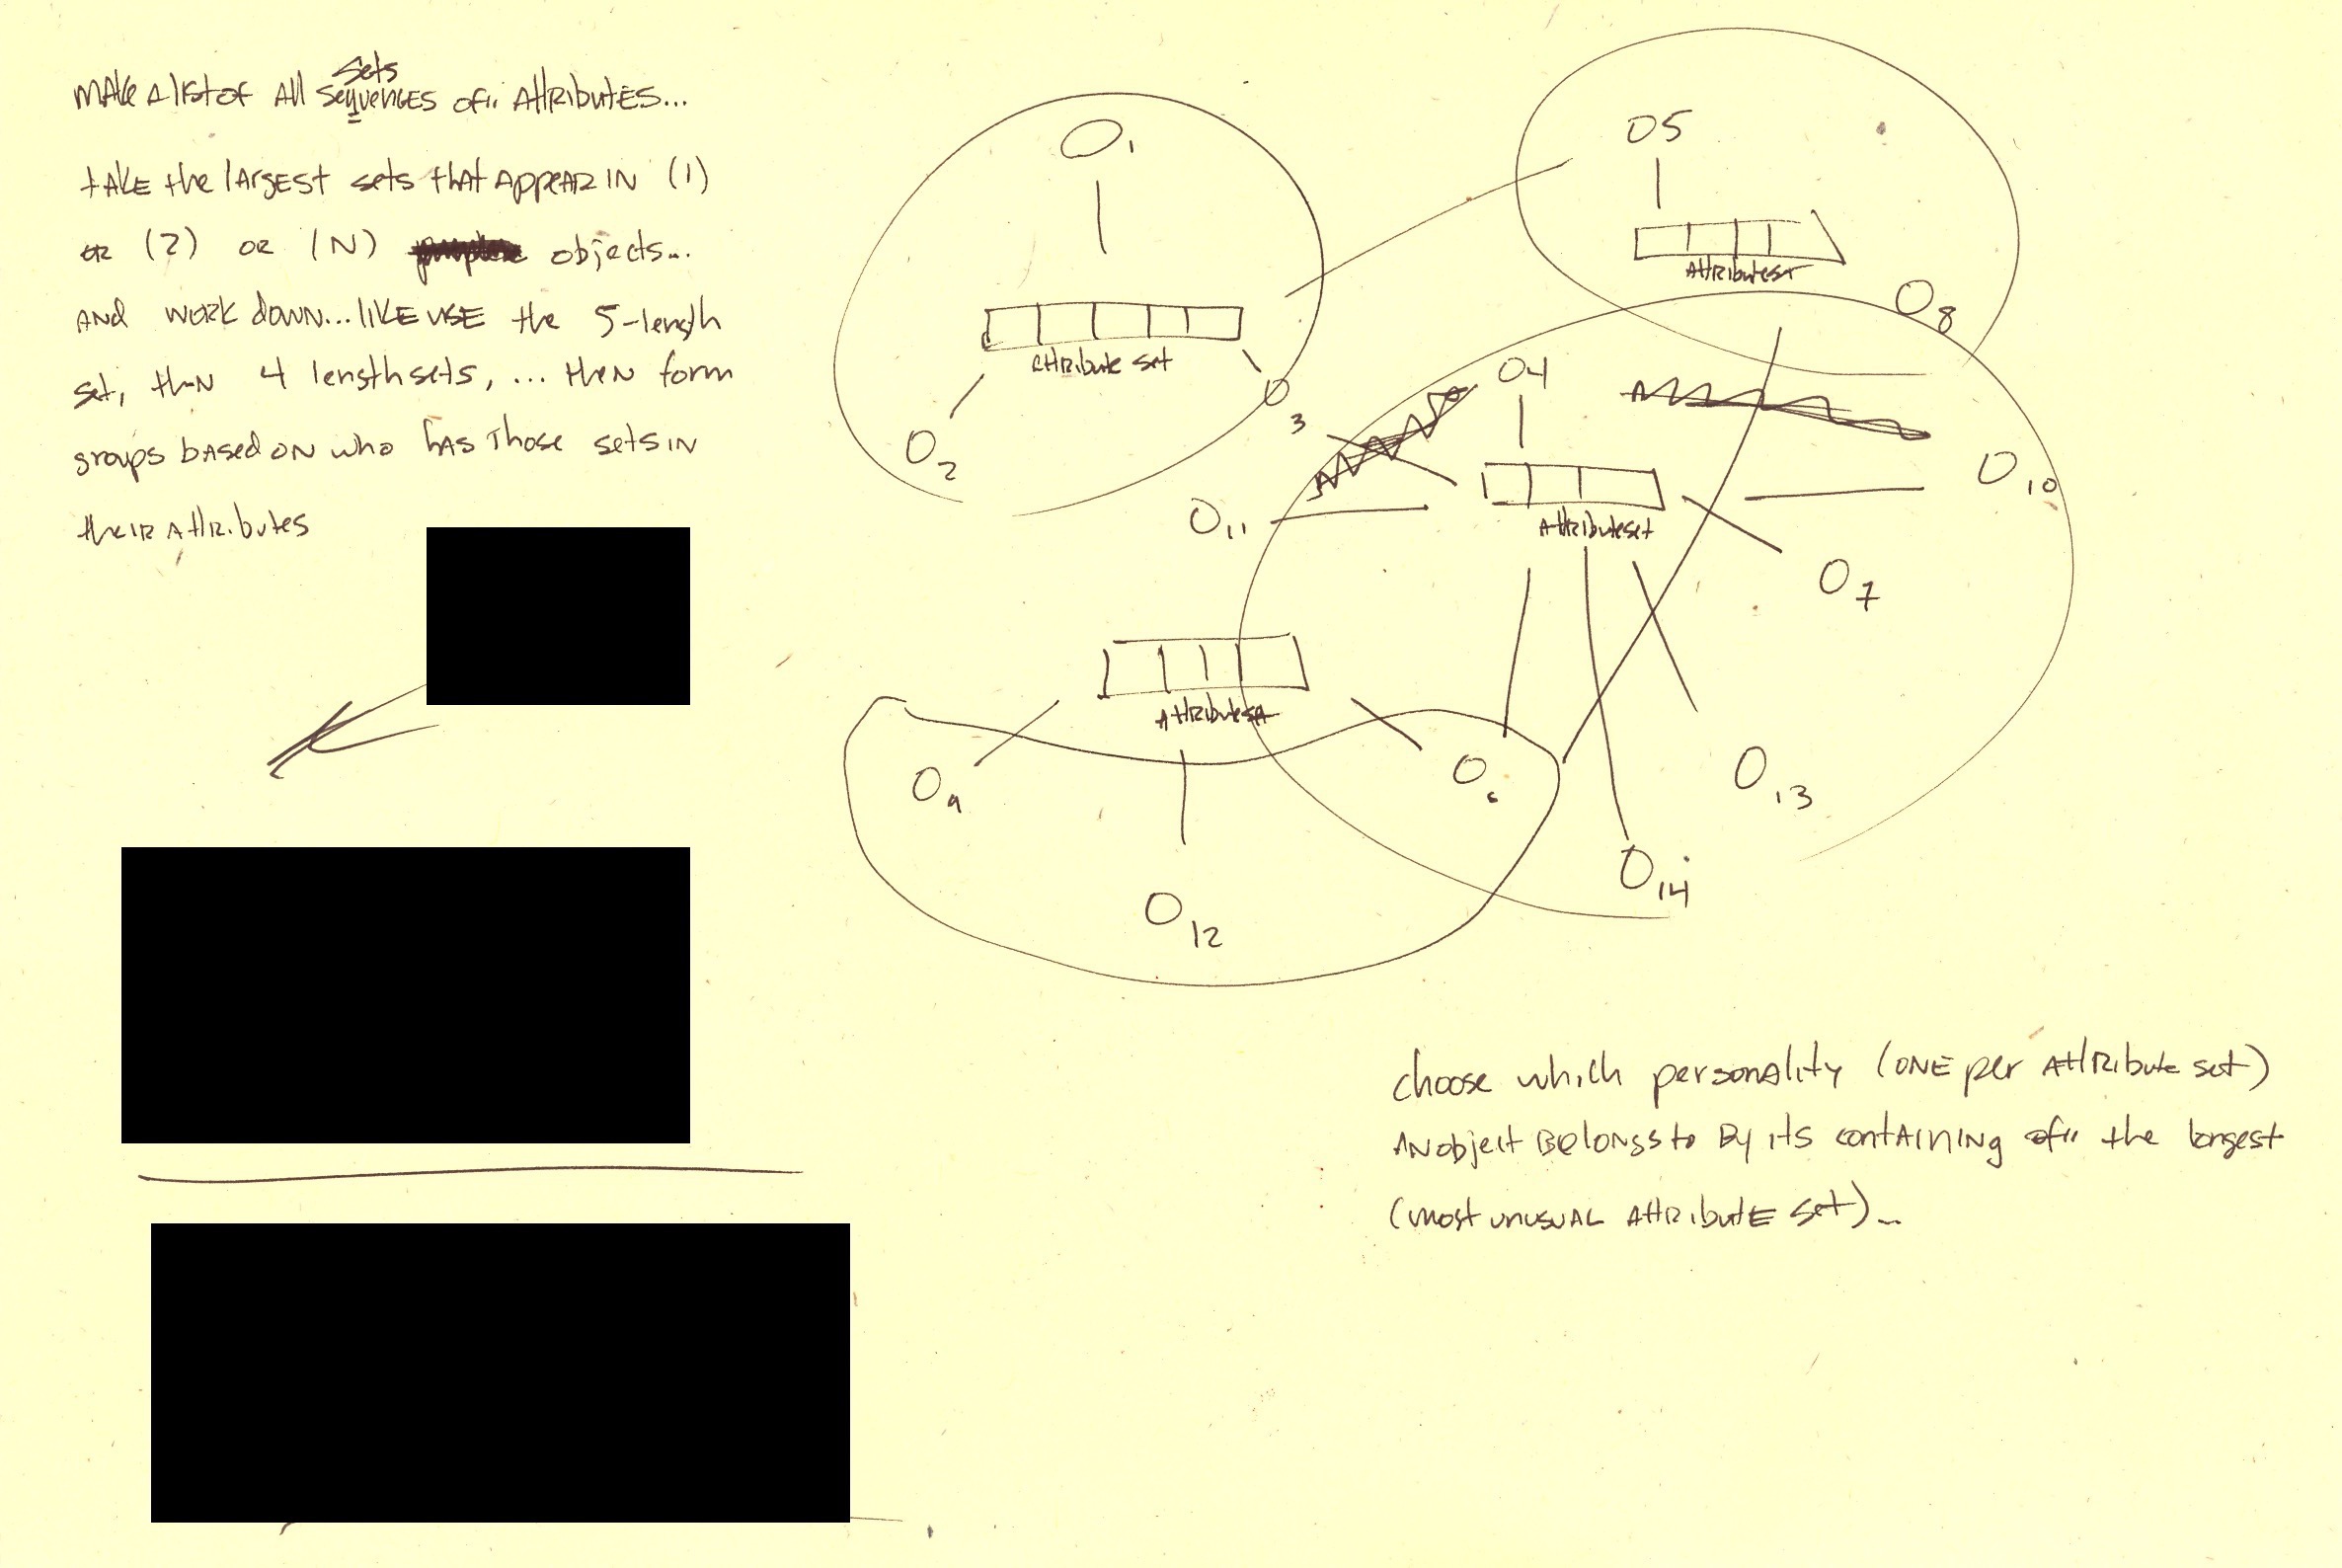 Sets
MAKE A list of All sequences of" Attributes...
tAKE the lArgEst sets thAt AppeAR IN (1)
or (2) or (N) objects...
ANd work down... lIKE USE the 5-length
set, thEN 4 length sets, ... then form
groups bAsed ON who hAs Those sets IN
theIR Attributes
O1
Attribute set
O2
O3
O5
Attribute set
O8
O4
O10
O11
Attribute set
O7
Attribute set
O9
O6
O13
O14
O12
choose which personality (ONE per Attribute set)
AN object Belongs to By its contAINING of" the largest
(most unusual Attribute set)...